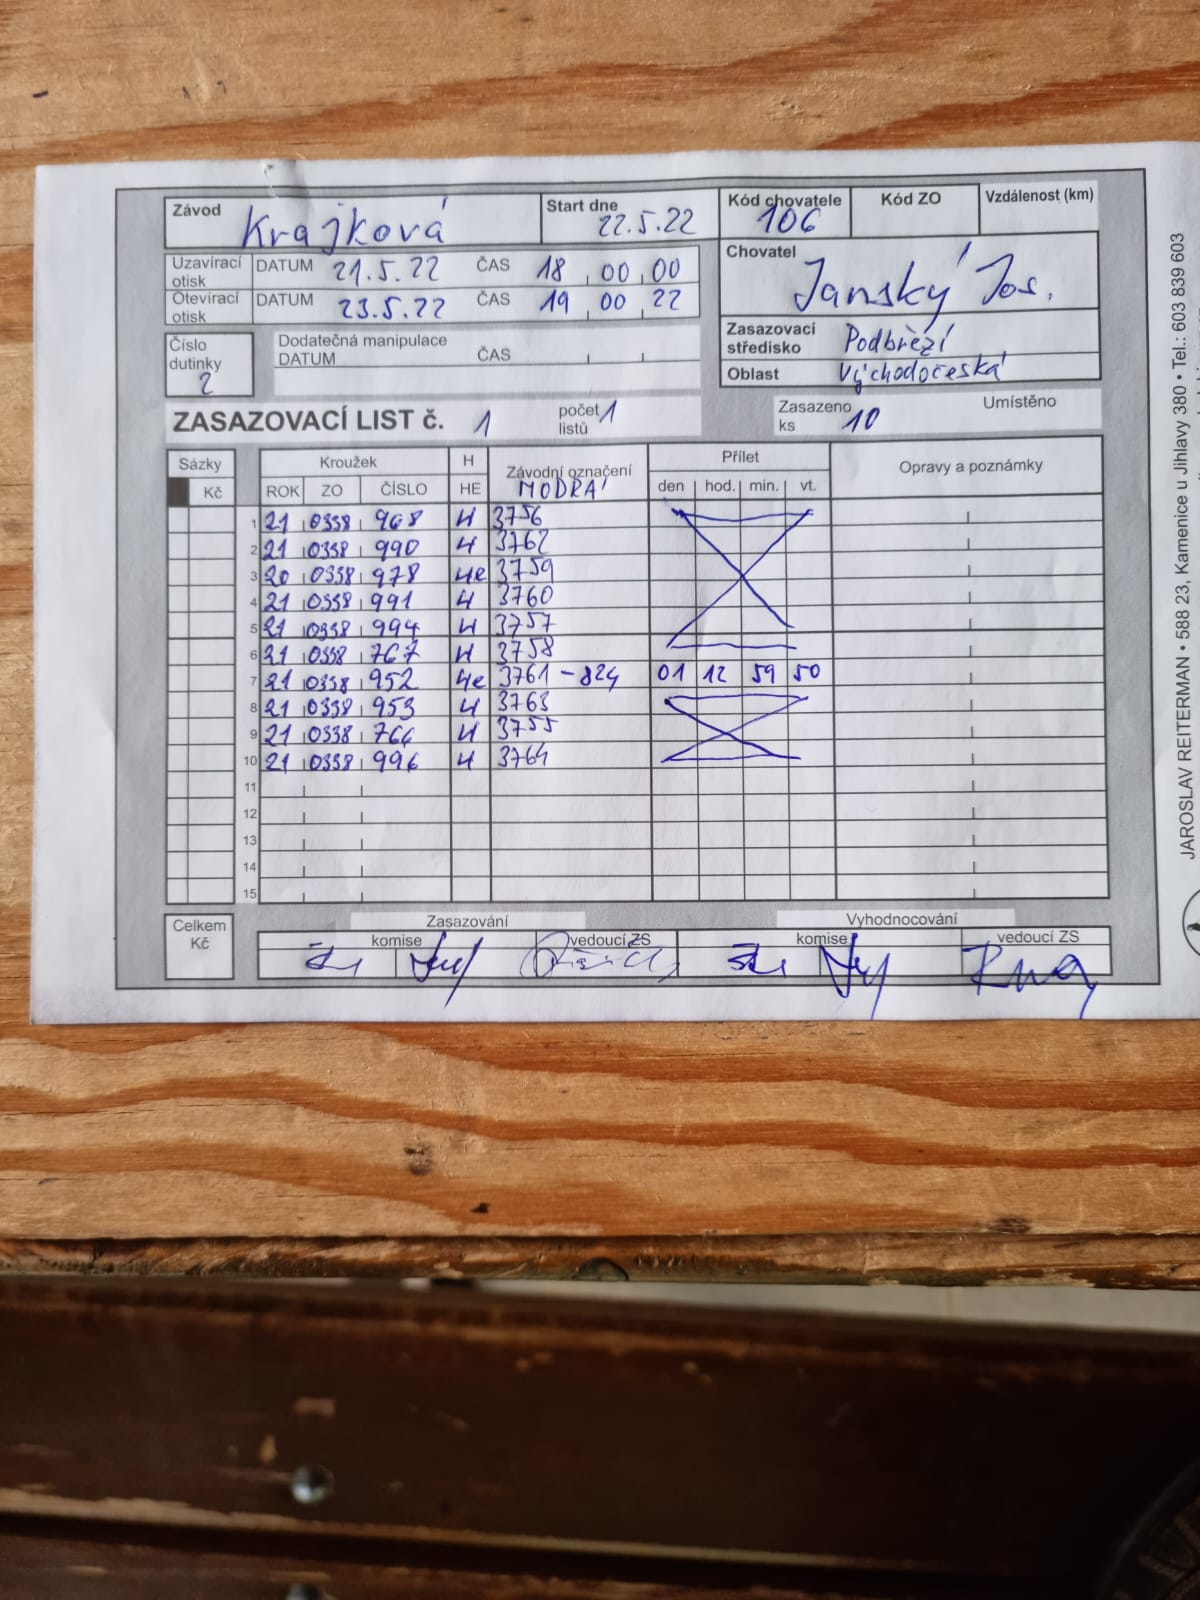 Závod Krajková Start dne 22.5.22 Kód chovatele 106 Kód ZO Vzdálenost (km)
Uzavírací otisk DATUM 21.5.22 ČAS 18 00 00
Otevírací otisk DATUM 23.5.22 ČAS 19 00 22
Chovatel Janský Jos.
Číslo dutinky 2
Dodatečná manipulace
DATUM ČAS
Zasazovací středisko Podbřezí
Oblast Východočeská
ZASAZOVACÍ LIST č. 1 počet listů 1 Zasazeno ks 10 Umístěno
Sázky Kroužek H Závodní označení Přílet Opravy a poznámky
Kč ROK ZO ČÍSLO HE MODRÁ den hod. min. vt.
1 21 0338 968 H 3756
2 21 0338 990 H 3762
3 20 0338 978 He 3759
4 21 0338 991 H 3760
5 21 0338 994 H 3757
6 21 0338 767 H 3758
7 21 0338 952 He 3761 - 824 01 12 59 50
8 21 0338 953 H 3763
9 21 0338 764 H 3755
10 21 0338 996 H 3764
11
12
13
14
15
Celkem Kč
Zasazování Vyhodnocování
komise vedoucí ZS komise vedoucí ZS
JAROSLAV REITERMAN • 588 23, Kamenice u Jihlavy 380 • Tel.: 603 839 603